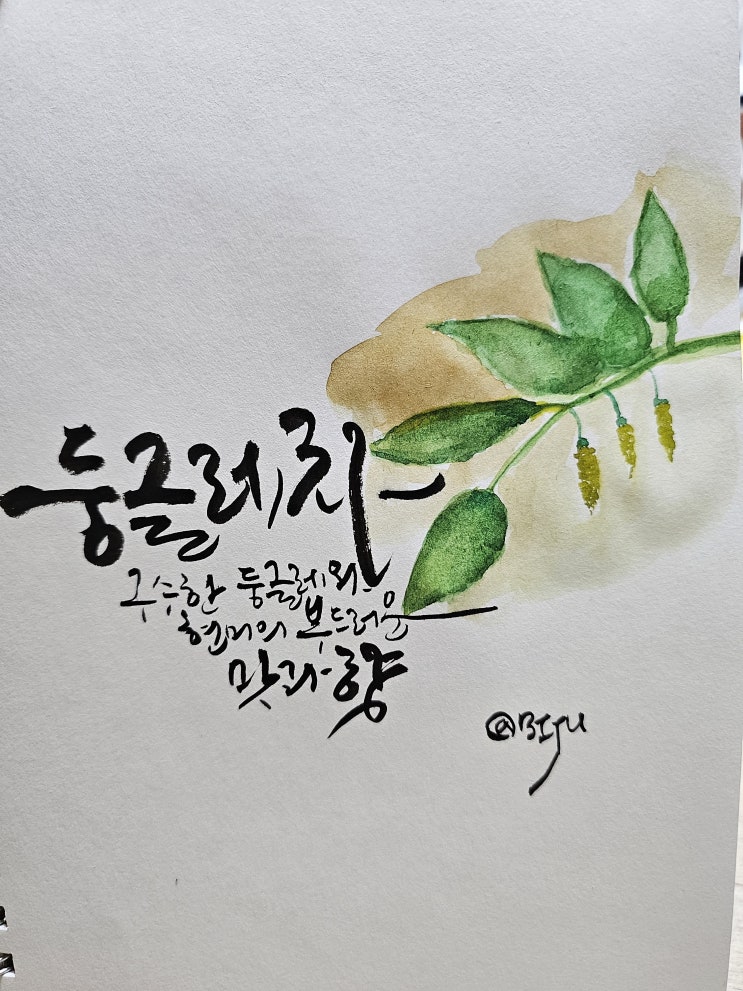 둥글레차
구수한 둥글레와
현미의 부드러운
맛과 향
@BIJU